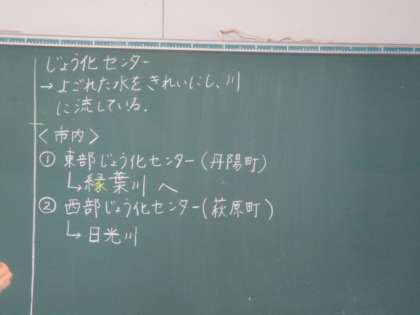 じょう化センター
→よごれた水をきれいにし、川
に流している。
<市内>
① 東部じょう化センター(丹陽町)
↳縁葉川へ
② 西部じょう化センター(萩原町)
↳日光川